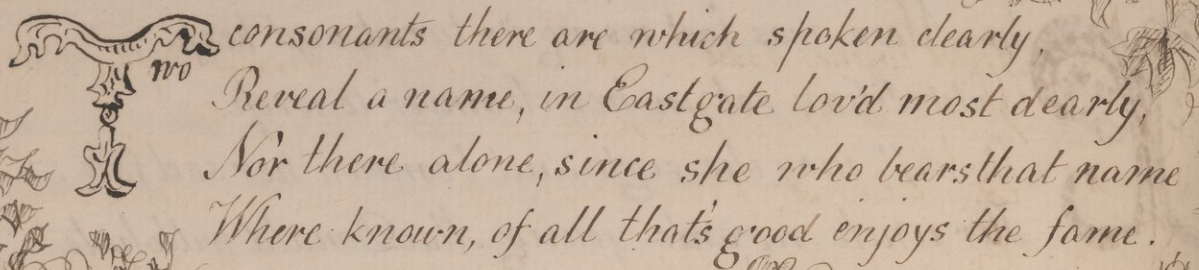 Two consonants there are which spoken clearly,
Reveal a name, in Eastgate lov'd most dearly,
Nor there alone, since she who bears that name
Where known, of all that's good enjoys the fame.